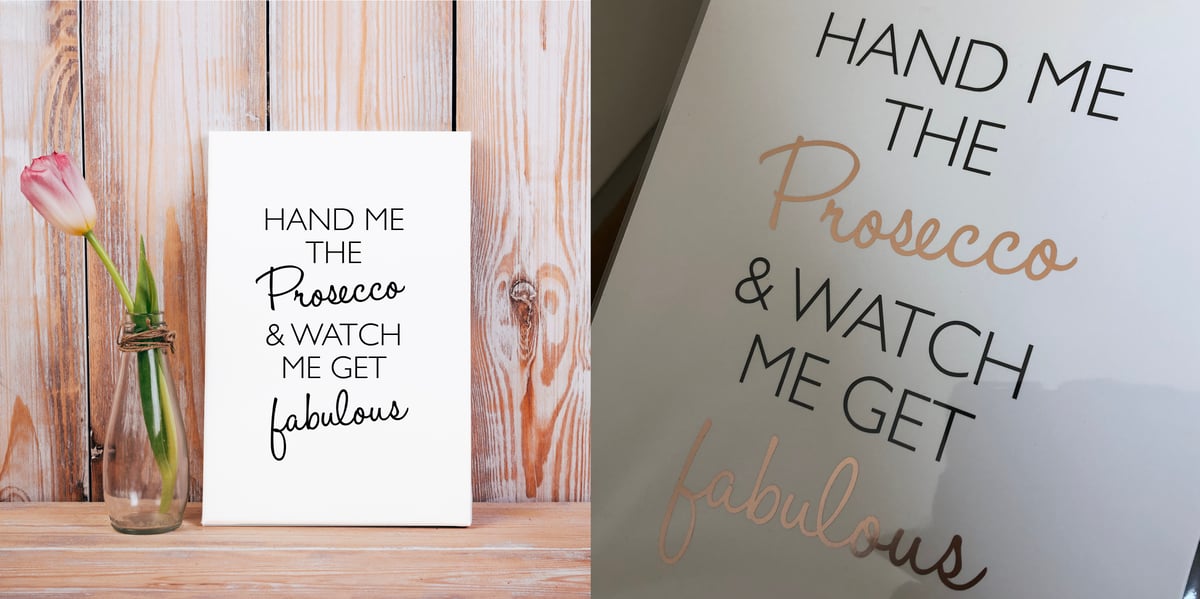 HAND ME
THE
Prosecco
& WATCH
ME GET
fabulous
HAND ME
THE
Prosecco
& WATCH
ME GET
fabulous